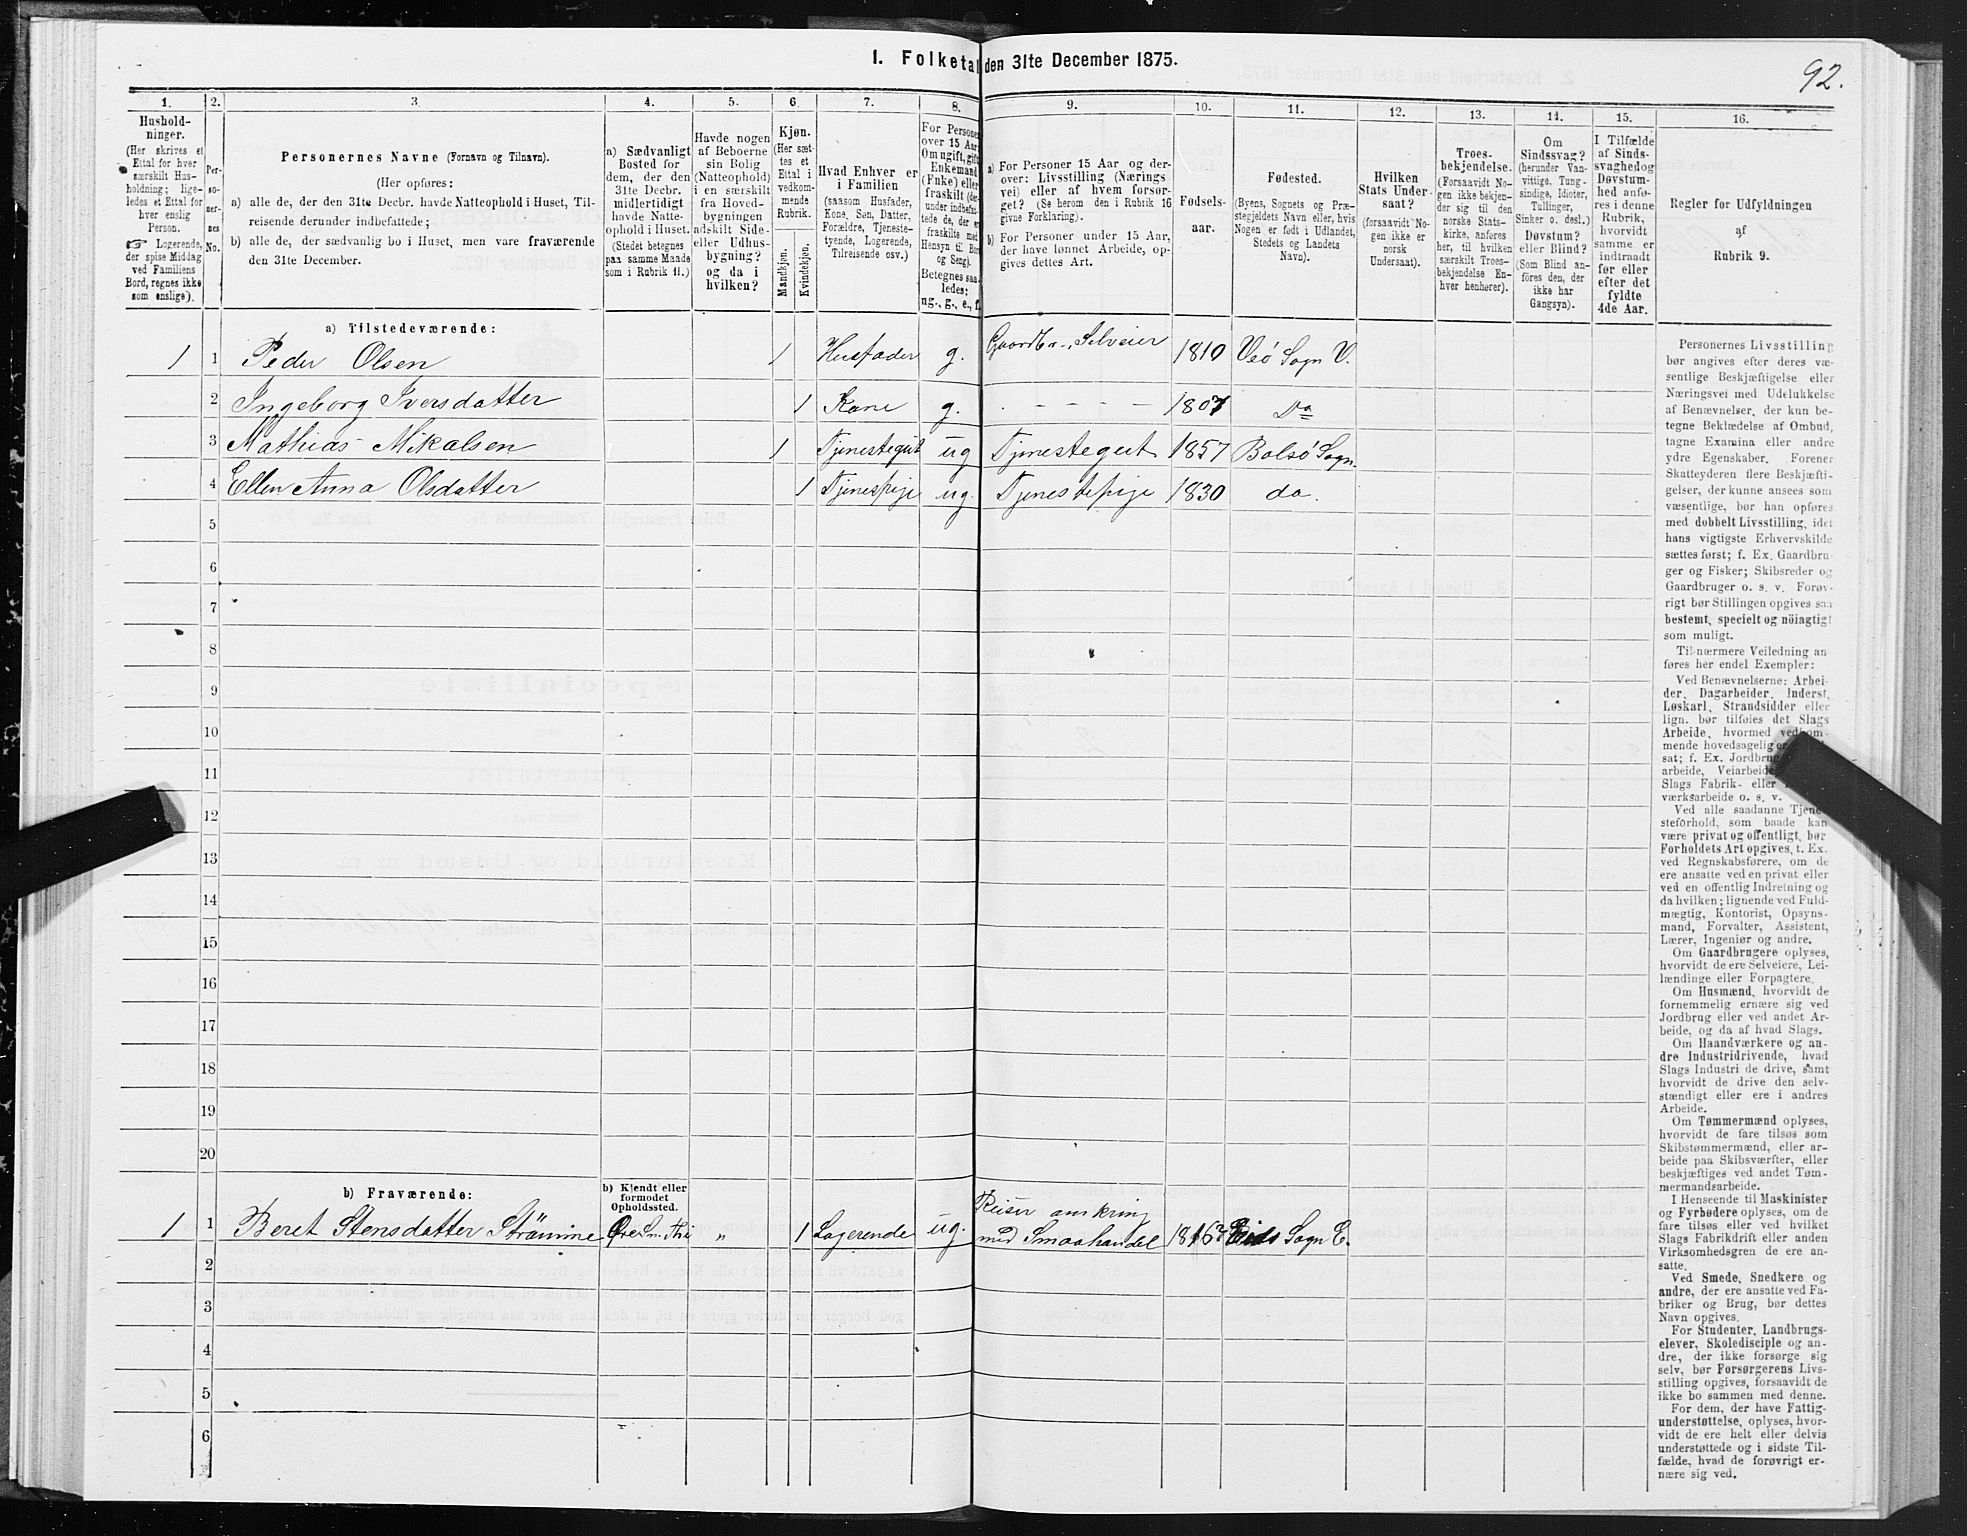 1. Folketal den 31te December 1875.
92.
1. 2. 3. 4. 5. 6. 7. 8. 9. 10. 11. 12. 13. 14. 15. 16.
Hushold-
ninger.
(Her skrives et
Ettal for hver
særskilt Hus-
holdning; lige-
ledes et Ettal for
hver enslig
Person.
☞ Logerende,
der spise Middag
ved Familiens
Bord, regnes ikke
som enslige).
Per-
so-
ner-
nes
No.
Personernes Navne (Fornavn og Tilnavn).
(Her opføres:
a) alle de, der den 31te Decbr. havde Natteophold i Huset, Til-
reisende derunder indbefattede;
b) alle de, der sædvanlig bo i Huset, men vare fraværende
den 31te December.
a) Sædvanligt
Bosted for
dem, der den
31te Decbr.
midlertidigt
havde Natte-
ophold i Huset.
(Stedet betegnes
paa samme Maade
som i Rubrik 11.)
Havde nogen
af Beboerne
sin Bolig
(Natteophold)
i en særskilt
fra Hoved-
bygningen
adskilt Side-
eller Udhus-
bygning?
og da i
hvilken?
Kjøn.
(Her sæt-
tes et
Ettal i
vedkom-
mende
Rubrik.
Mandkjøn.
Kvindekjøn.
Hvad Enhver er
i Familien
(saasom Husfader,
Kone, Søn, Datter,
Forældre, Tjeneste-
tyende, Logerende,
Tilreisende osv.)
For Persone
over 15 Aar
Om ugift, gift
Enkemand
(Enke) eller
fraskilt (der-
under indbefat-
tede de, der er
fraskilte med
Hensyn til Bor
og Seng).
Betegnes saa
ledes:
ug., g., e., f.
a) For Personer 15 Aar og der-
over: Livsstilling (Nærings-
vei) eller af hvem forsør-
get? (Se herom den i Rubrik 16
givne Forklaring).
b) For Personer under 15 Aar,
der have lønnet Arbeide, op-
gives dettes Art.
Fødsels-
aar.
Fødested.
(Byens, Sognets og Præ-
stegjeldets Navn eller, hvis
Nogen er født i Udlandet,
Stedets og Landets
Navn).
Hvilken
Stats Under-
saat?
(forsaavidt No-
gen ikke er
norsk
Undersaat).
Troes-
bekjendelse.
(Forsaavidt No-
gen ikke bekjen-
der sig til den
norske Stats-
kirke, anføres
her, til hvilken
særskilt Troes-
bekjendelse En-
hver henhører).
Om
Sindssvag?
(herunder Van-
vittige, Tung-
sindige, Idioter,
Tullinger,
Sinker o. desl.)
Døvstum?
eller Blind?
(Som Blind an-
føres den, der
ikke har
Gangsyn).
I Tilfælde
af Sinds-
svaghed og
Døvstum-
hed anfø-
res i denne
Rubrik,
hvorvidt
samme er
indtraadt
før eller
efter det
fyldte
4de Aar.
Regler for Udfyldningen
af
Rubrik 9.
a) Tilstedeværende:
1 1 Peder Olsen 1 Husfader g. Gaardbr., Selveier 1810 Veö Sogn V.
2 Ingeborg Iversdatter 1 Kone g. - - - - 1807 Do
3 Mathias Mikalsen 1 Tjenestegut ug Tjenestegut 1857 Bolsö Sogn.
4 Ellen Anna Olsdatter 1 Tjenespige ug. Tjenestepige 1830 do.
5
6
7
8
9
10
11
12
13
14
15
16
17
18
19
20
b) Fraværende:
b) Kjendt eller
formodet
Opholdssted.
Reiser omkring
1 1 Beret Stensdatter Strömme „ 1 Logerende ug. med Smaahandel Eids Sogn E.
2
3
4
5
6
Personernes Livsstilling
bør angives efter deres væ-
sentlige Beskjæftigelse eller
Næringsvei med Udelukkelse
af Benævnelser, der kun be-
tegne Beklædelse af Ombud,
tagne Examina eller andre
ydre Egenskaber. Forener
Skatteyderen flere Beskjæfti-
gelser, der kunne ansees som
væsentlige, bør han opføres
med dobbelt Livsstilling, idet
hans vigtigste Erhvervskilde
sættes først; f. Ex. Gaardbru-
ger og Fisker; Skibsreder og
Gaardbruger o. s. v. Forøv-
rigt bør Stillingen opgives saa
bestemt, specielt og nöiagtigt
som muligt.
Til nærmere Veiledning an
føres her endel Exempler:
Ved Benævnelserne: Arbei-
der, Dagarbeider, Inderst,
Løskarl, Strandsidder eller
lign. bør tilføies det Slags
Arbeide, hvormed vedkom-
mende hovedsagelig er
sat; f. Ex. Jordbrug
arbeide, Veiarbeide
Slags Fabrik- eller
værksarbeide o. s. v.
Ved alle saadanne Tjene-
steforhold, som baade kan
være privat og offentligt, bør
Forholdets Art opgives, t. Ex.
ved Regnskabsførere, om de
ere ansatte ved en privat eller
ved en offentlig Indretning og
da hvilken; lignende ved Fuld-
mægtig, Kontorist, Opsyns-
mand, Forvalter, Assistent,
Lærer, Ingeniør og andre.
Om Gaardbrugere oplyses,
hvorvidt de ere Selveiere, Lei-
lændinge eller Forpagtere.
Om Husmænd, hvorvidt de
fornemmelig ernære sig ved
Jordbrug eller ved andet Ar-
beide, og da af hvad Slags.
Om Haandværkere og an-
dre Industridrivende, hvad
Slags Industri de drive, samt
hvorvidt de drive den selv-
stændigt eller ere i andres
Arbeide.
Om Tømmermænd oplyses,
hvorvidt de fare tilsøs som
Skibstømmermænd, eller ar-
beide paa Skibsværfter, eller
beskjæftiges ved andet Tøm-
mermandsarbeide.
I Henseende til Maskinister
og Fyrbødere oplyses, om de
fare tilsøs eller ved hvilket
Slags Fabrikdrift eller anden
Virksomhedsgren de ere an-
satte.
Ved Smede, Snedkere og
andre, der ere ansatte ved Fa-
briker og Brug, bør dettes
Navn opgives.
For Studenter, Landbrugs-
elever, Skoledisciple og an-
dre, der ikke forsørge sig
selv, bør Forsørgerens Livs-
stilling opgives, forsaavidt de
ikke bo sammen med denne.
For dem, der have Fattig-
understøttelse, oplyses, hvor-
vidt de ere helt eller delvis
understøttede og i sidste Til-
fælde, hvad de forøvrigt er-
nære sig ved.